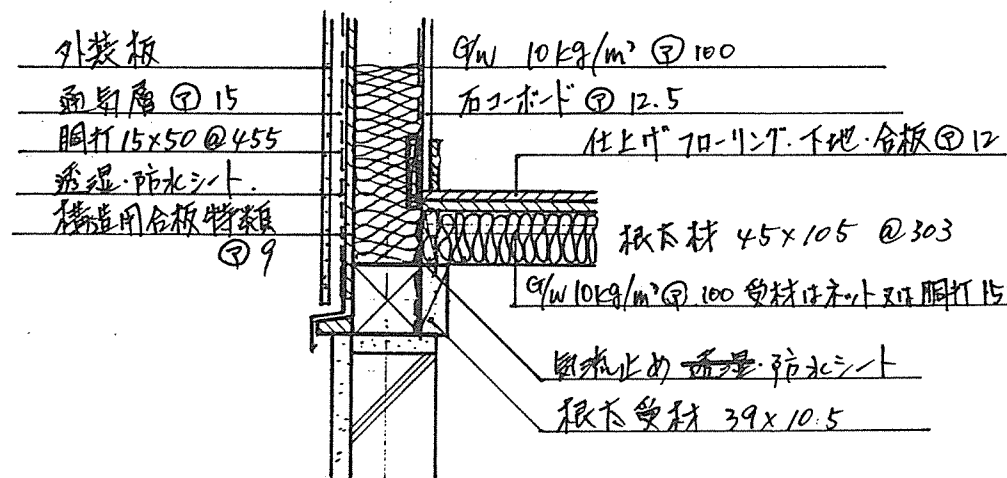 外装板
通気層 ㋐ 15
胴打 15×50 @455
透湿・防水シート.
構造用合板 特類
㋐ 9
G/W 10kg/m³ ㋐ 100
石コーボード ㋐ 12.5
仕上げ フローリング.下地・合板 ㋐ 12
根太材 45×105 @303
G/W 10kg/m³ ㋐ 100 受材はネット又は胴打 15
気流止め 透湿・防水シート
根太受材 39×10.5